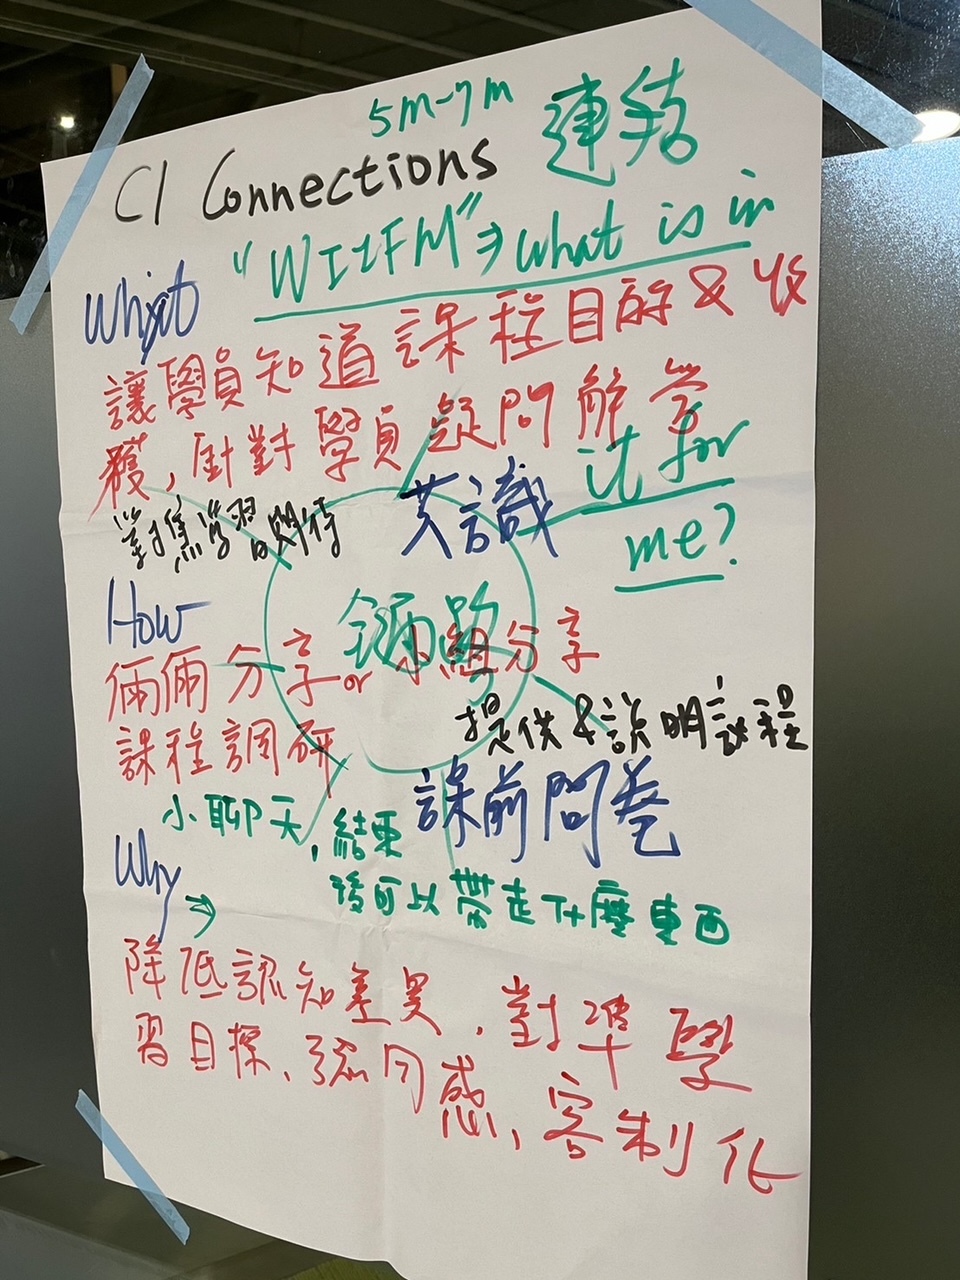 5m-7m
C1 Connections 連結
"WIIFM" → what is in
What
讓學員知道課程目的 & 收
穫，針對學員疑問解答
it for
me?
對焦學習期待
共識
How
鋪路
倆倆分享 or 小組分享
提供&說明課程
課程調研
課前問卷
小聊天，結束
後可以帶走什麼東西
Why →
降低認知差異，對準學
習目標、強同感，客制化